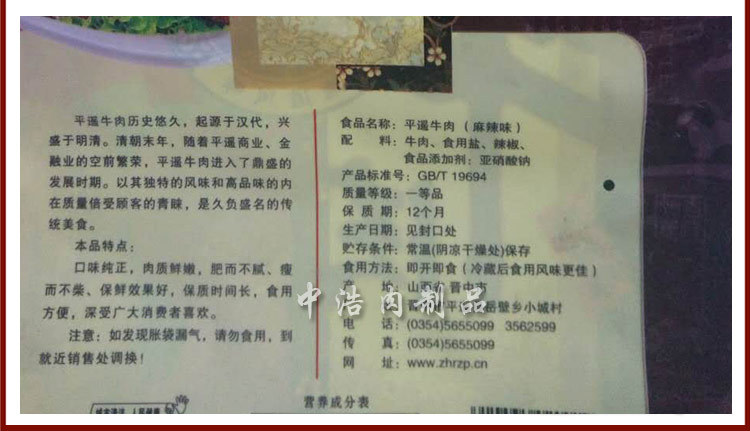 平遥牛肉历史悠久，起源于汉代，兴
盛于明清。清朝末年，随着平遥商业、金
融业的空前繁荣，平遥牛肉进入了鼎盛的
发展时期。以其独特的风味和高品味的内
在质量倍受顾客的青睐，是久负盛名的传
统美食。
本品特点：
口味纯正，肉质鲜嫩，肥而不腻、瘦
而不柴、保鲜效果好，保质时间长，食用
方便，深受广大消费者喜欢。
注意：如发现胀袋漏气，请勿食用，到
就近销售处调换！
食品名称：平遥牛肉（麻辣味）
配 料：牛肉、食用盐、辣椒、
食品添加剂：亚硝酸钠
产品标准号：GB/T 19694
质量等级：一等品
保 质 期：12个月
生产日期：见封口处
贮存条件：常温(阴凉干燥处)保存
食用方法：即开即食（冷藏后食用风味更佳）
产 地：山西省晋中市
平遥 岳壁乡小城村
电 话：(0354)5655099 3562599
传 真：(0354)5655099
网 址：www.zhrzp.cn
中浩肉制品
营养成分表